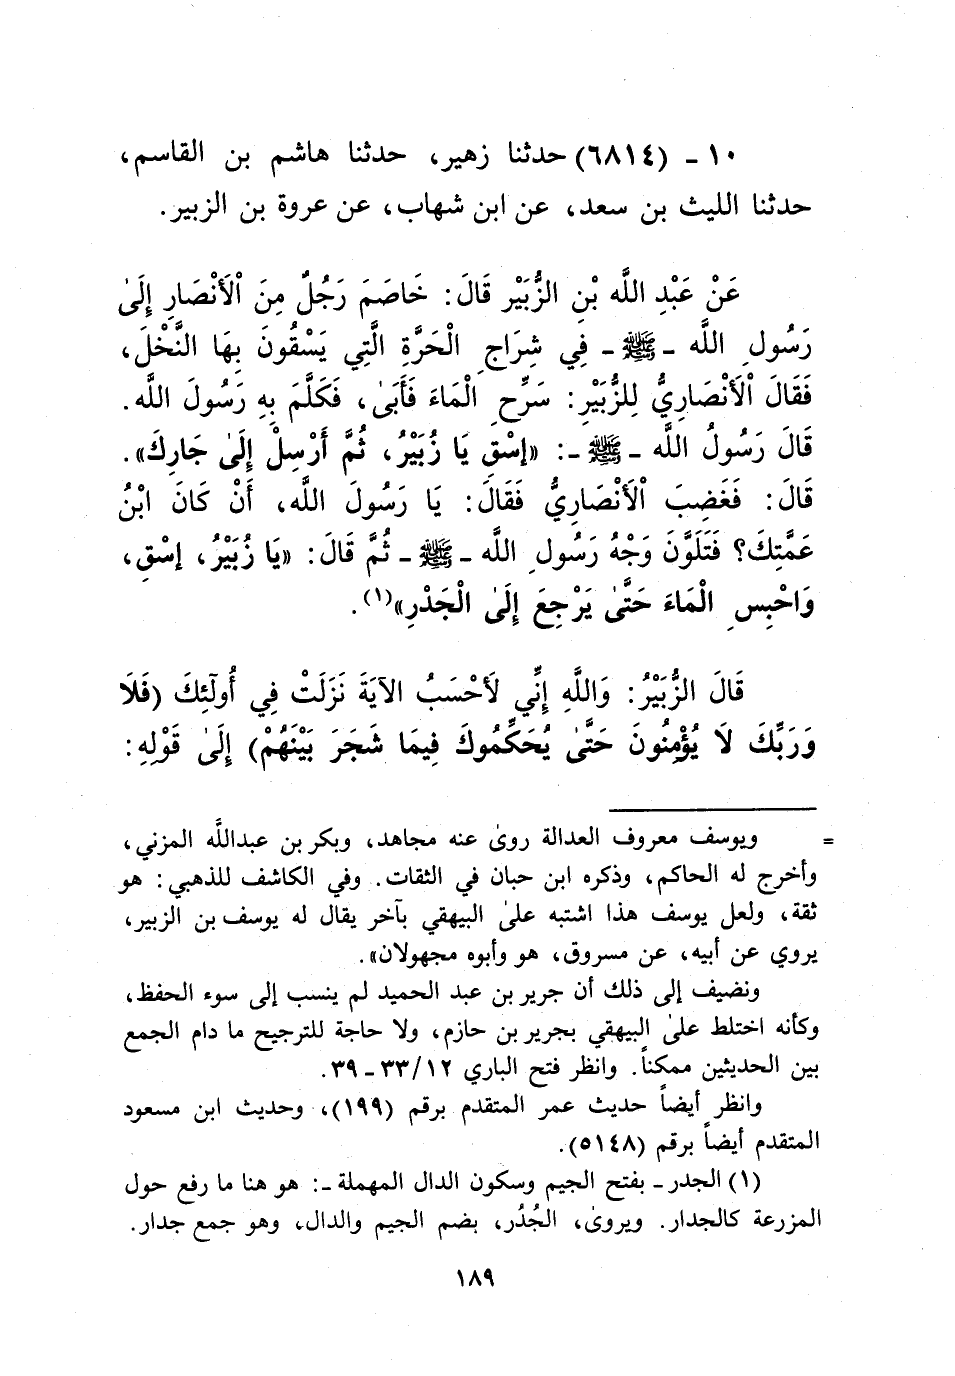 ١٠ ـ (٦٨١٤) حدثنا زهير، حدثنا هاشم بن القاسم،
حدثنا الليث بن سعد، عن ابن شهاب، عن عروة بن الزبير.
عَنْ عَبْدِ اللَّه بْنِ الزُّبَيْرِ قَالَ: خَاصَمَ رَجُلٌ مِنَ اْلأَنْصَارِ إِلَىٰ
رَسُولِ اللَّه ـ ﷺ ـ فِي شِرَاجِ الْحَرَّةِ الَّتِي يَسْقُونَ بِهَا النَّخْلَ،
فَقَالَ اْلأَنْصَارِيُّ لِلزُّبَيْرِ: سَرِّحِ الْمَاءَ فَأَبَىٰ، فَكَلَّمَ بِهِ رَسُولَ اللَّه.
قَالَ رَسُولُ اللَّه ـ ﷺ ـ: «إسْقِ يَا زُبَيْرُ، ثُمَّ أَرْسِلْ إِلَىٰ جَارِكَ».
قَالَ: فَغَضِبَ اْلأَنْصَارِيُّ فَقَالَ: يَا رَسُولَ اللَّه، أَنْ كَانَ ابْنُ
عَمَّتِكَ؟ فَتَلَوَّنَ وَجْهُ رَسُولِ اللَّه ـ ﷺ ـ ثُمَّ قَالَ: «يَا زُبَيْرُ، إسْقِ،
وَاحْبِسِ الْمَاءَ حَتَّىٰ يَرْجِعَ إِلَىٰ الْجَدْرِ»(١).
قَالَ الزُّبَيْرُ: وَاللَّهِ إِنِّي لَأَحْسَبُ الآيَةَ نَزَلَتْ فِي أُولَٰئِكَ (فَلَا
وَرَبِّكَ لَا يُؤْمِنُونَ حَتَّىٰ يُحَكِّمُوكَ فِيمَا شَجَرَ بَيْنَهُمْ) إِلَىٰ قَوْلِهِ:
= ويوسف معروف العدالة روىٰ عنه مجاهد، وبكر بن عبداللَّه المزني،
وأخرج له الحاكم، وذكره ابن حبان في الثقات. وفي الكاشف للذهبي: هو
ثقة، ولعل يوسف هذا اشتبه علىٰ البيهقي بآخر يقال له يوسف بن الزبير،
يروي عن أبيه، عن مسروق، هو وأبوه مجهولان».
ونضيف إلى ذلك أن جرير بن عبد الحميد لم ينسب إلى سوء الحفظ،
وكأنه اختلط علىٰ البيهقي بجرير بن حازم، ولا حاجة للترجيح ما دام الجمع
بين الحديثين ممكناً. وانظر فتح الباري ١٢/ ٣٣ ـ ٣٩.
وانظر أيضاً حديث عمر المتقدم برقم (١٩٩)، وحديث ابن مسعود
المتقدم أيضاً برقم (٥١٤٨).
(١) الجدر ـ بفتح الجيم وسكون الدال المهملة ـ: هو هنا ما رفع حول
المزرعة كالجدار. ويروىٰ، الجُدُر، بضم الجيم والدال، وهو جمع جدار.
١٨٩